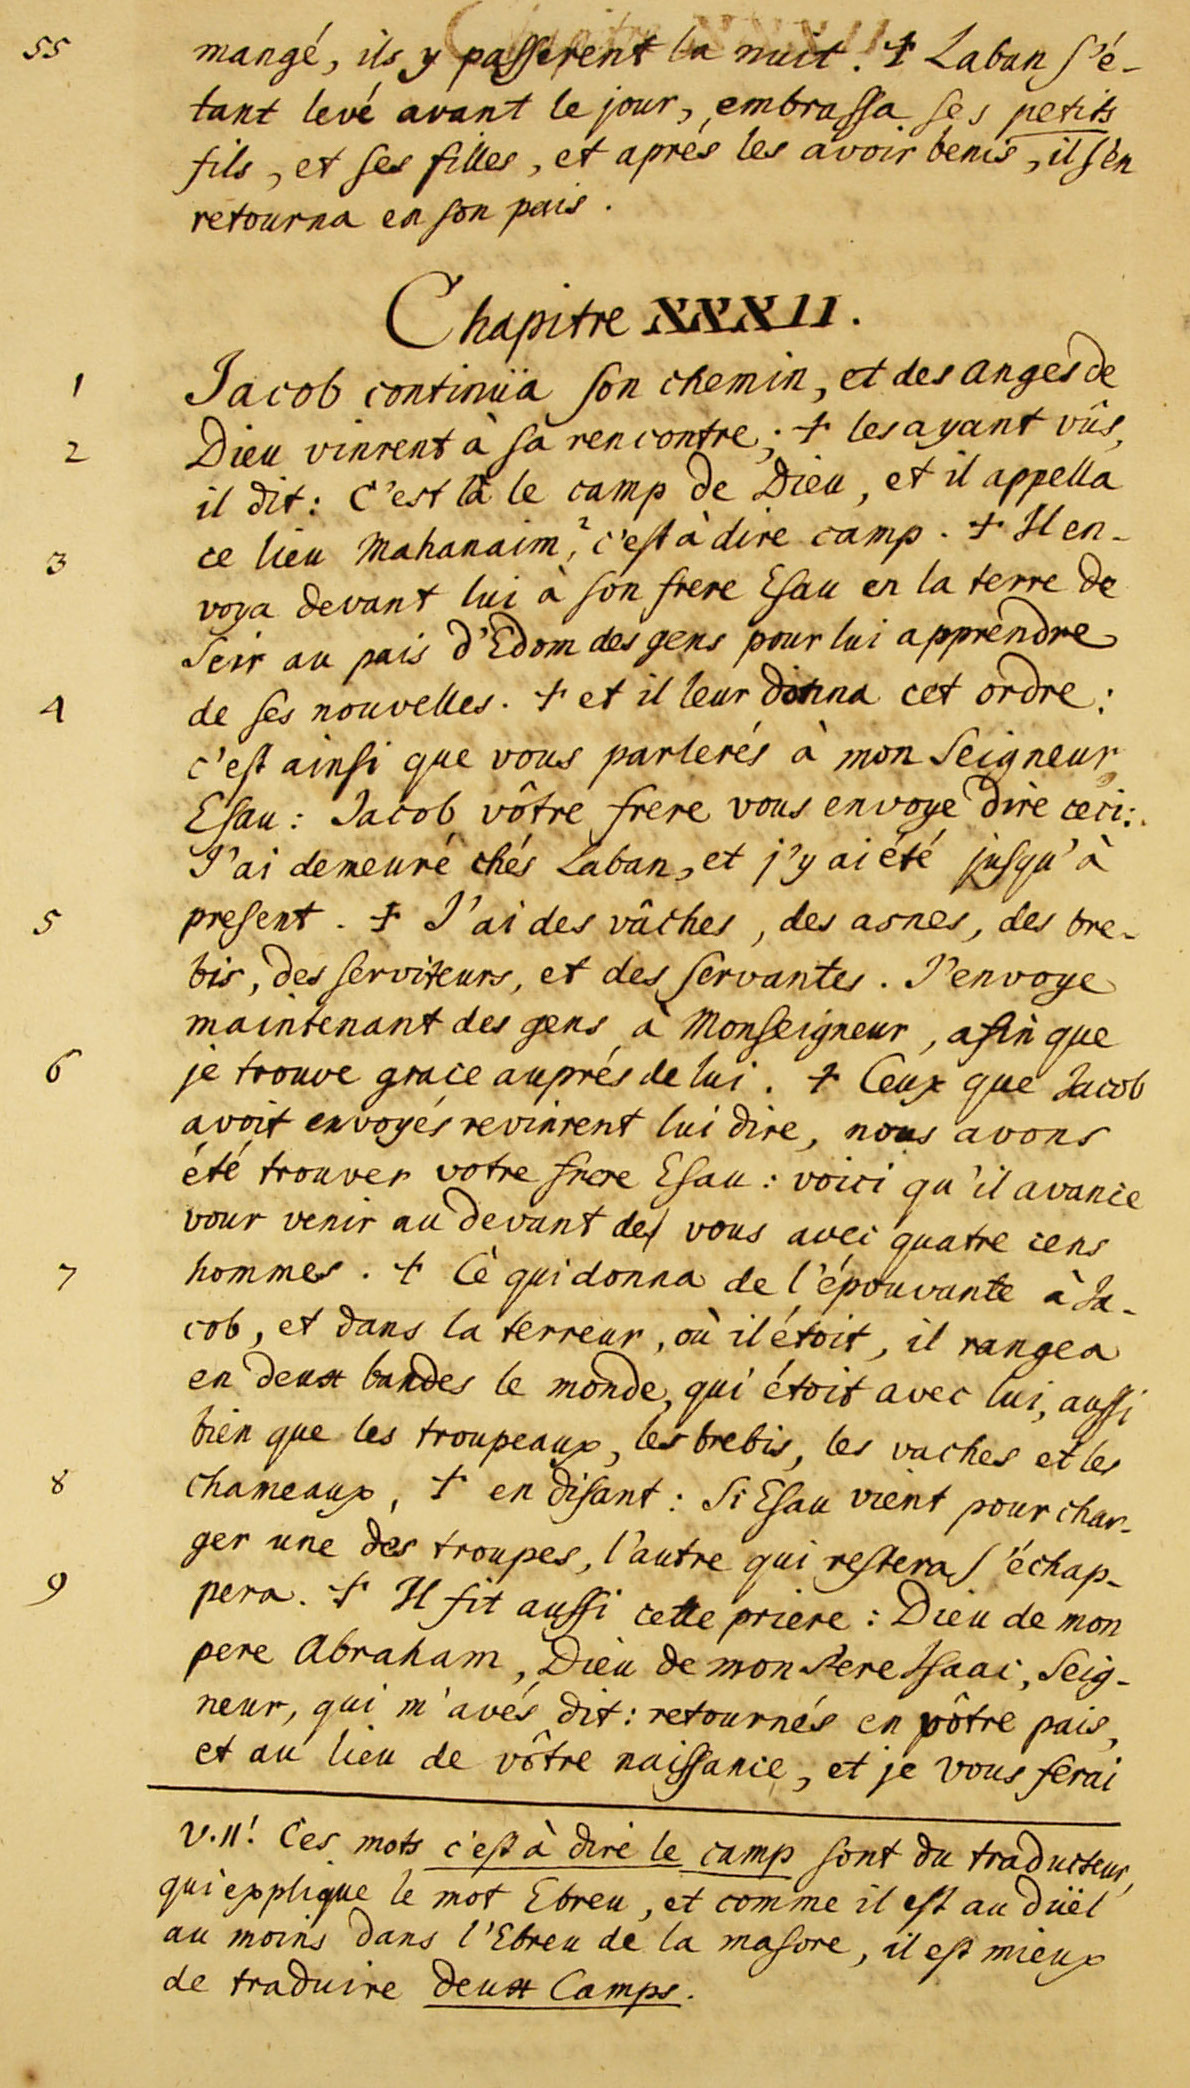 55 mangé, ils y passerent la nuit. + Laban s'é-
tant levé avant le jour, embrassa ses petits
fils, et ses filles, et aprés les avoir benis, il s'en
retourna en son pais.
Chapitre XXXII.
1 Jacob continüa son chemin, et des anges de
2 Dieu vinrent à sa rencontre; + les ayant vûs,
il dit: C'est là le camp de Dieu, et il appella
3 ce lieu Mahanaim,² c'est à dire camp. + Il en-
voya devant lui à son frere Esau en la terre de
Seir au pais d'Edom des gens pour lui apprendre
4 de ses nouvelles. + et il leur donna cet ordre:
c'est ainsi que vous parlerés à mon Seigneur
Esau: Jacob vôtre frere vous envoye dire ceci:
J'ai demeuré chés Laban, et j'y ai été jusqu'à
5 present. + J'ai des vâches, des asnes, des bre-
bis, des serviteurs, et des servantes. J'envoye
maintenant des gens à Monseigneur, afin que
6 je trouve grace auprés de lui. + Ceux que Jacob
avoit envoyés revinrent lui dire, nous avons
été trouver votre frere Esau: voici qu'il avance
pour venir au devant de vous avec quatre cens
7 hommes. + Ce qui donna de l'épouvante à Ja-
cob, et dans la terreur, où il étoit, il rangea
en deux bandes le monde, qui étoit avec lui, aussi
bien que les troupeaux, les brebis, les vaches et les
8 chameaux, + en disant: Si Esau vient pour char-
ger une des troupes, l'autre qui restera s'échap-
9 pera. + Il fit aussi cette priere: Dieu de mon
pere Abraham, Dieu de mon Pere Isaac, Seig-
neur, qui m'avés dit: retournés en vôtre pais,
et au lieu de vôtre naissance, et je vous ferai
V.11! Ces mots c'est à dire le camp sont du traducteur,
qui explique le mot Ebreu, et comme il est au düel
au moins dans l'Ebreu de la masore, il est mieux
de traduire deux Camps.